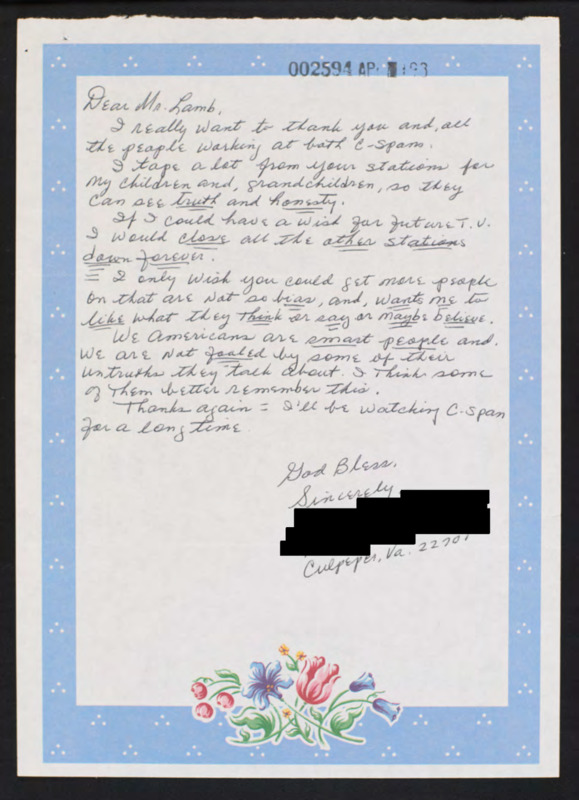 002594 AP '93
Dear Mr. Lamb,
I really want to thank you and, all
the people working at both C-Span.
I tape a lot from your stations for
my children and, grandchildren, so they
can see truth and honesty.
If I could have a wish for future T.V.
I would close all the other stations
down forever.
= I only wish you could get more people
on that are not so bias, and, wants me to
like what they think or say or maybe believe.
We Americans are smart people and.
We are not fooled by some of their
untruths they talk about. I think some
of them better remember this.
Thanks again = I'll be watching C-Span
for a long time.
God Bless,
Sincerely
Culpeper, Va. 22701